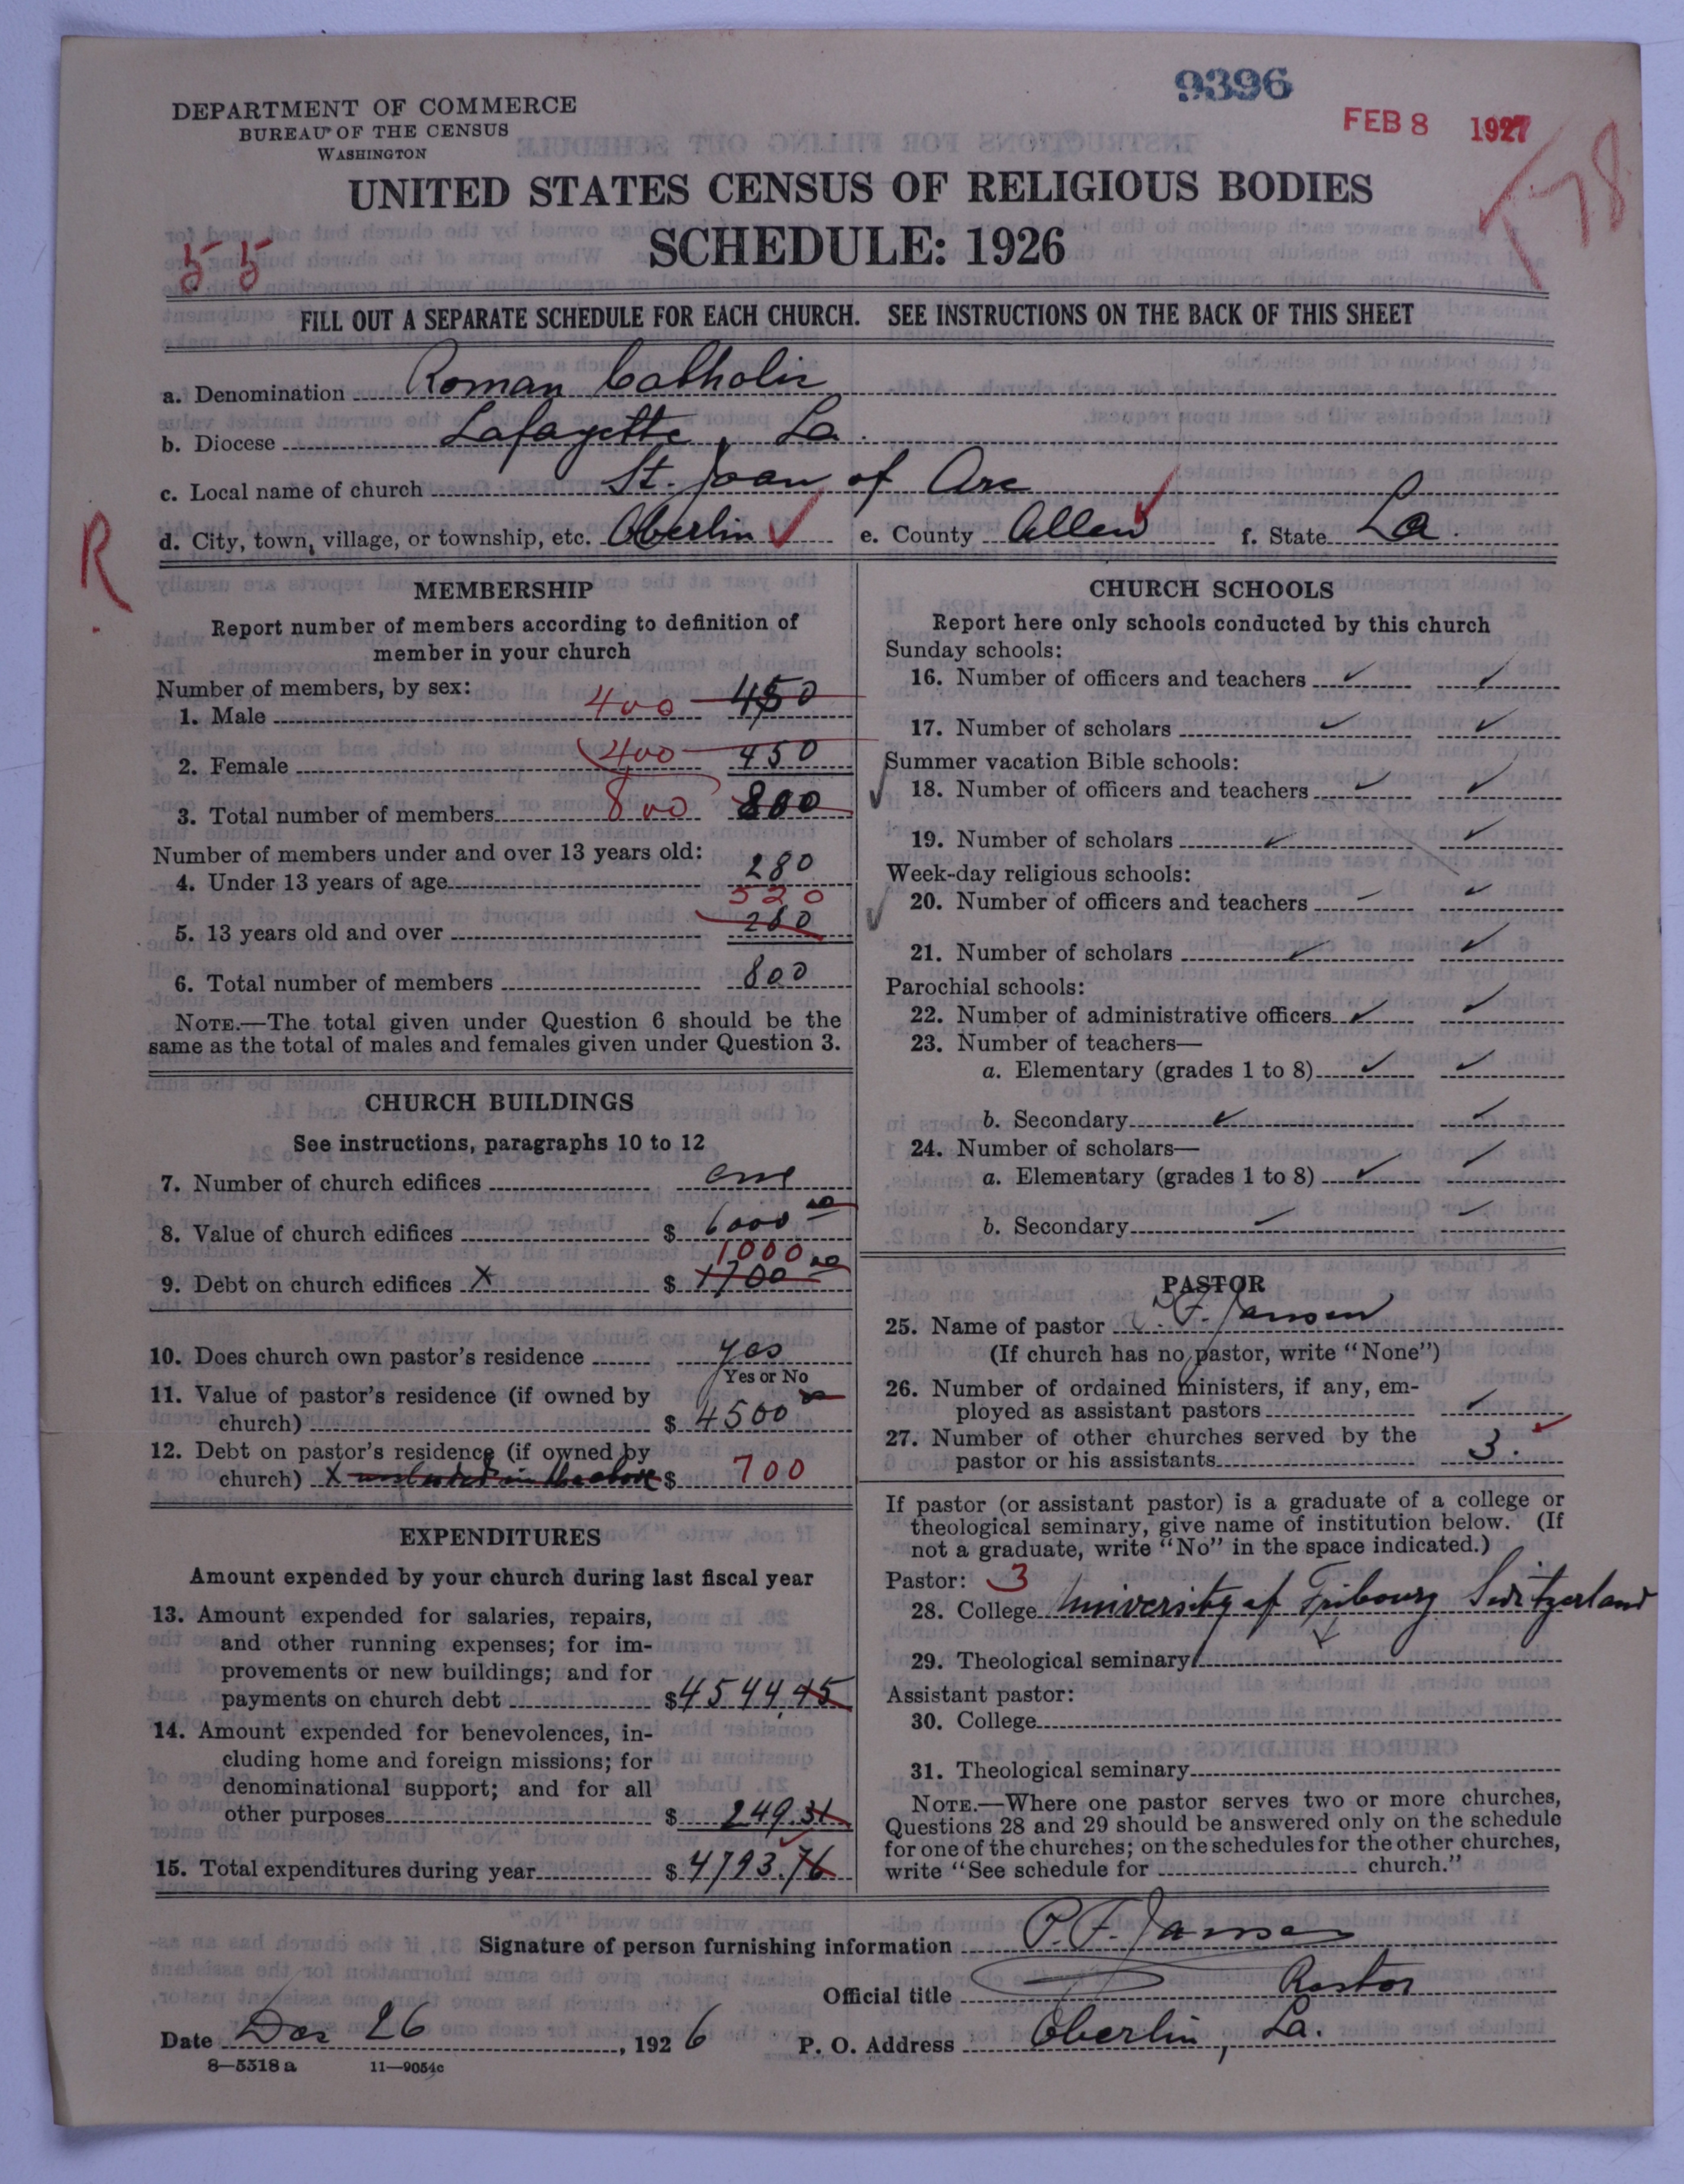 9396
DEPARTMENT OF COMMERCE
BUREAU OF THE CENSUS
WASHINGTON
FEB 8 1927
T78
UNITED STATES CENSUS OF RELIGIOUS BODIES
SCHEDULE: 1926
55
FILL OUT A SEPARATE SCHEDULE FOR EACH CHURCH. SEE INSTRUCTIONS ON THE BACK OF THIS SHEET
a. Denomination Roman Catholic
b. Diocese Lafayette, La.
c. Local name of church St. Joan of Arc
d. City, town, village, or township, etc. Oberlin e. County Allen f. State La.
R
MEMBERSHIP
Report number of members according to definition of
member in your church
Number of members, by sex:
1. Male 400 450
2. Female 400 450
3. Total number of members 800 800
Number of members under and over 13 years old:
4. Under 13 years of age 280
520
5. 13 years old and over 280
6. Total number of members 800
NOTE.—The total given under Question 6 should be the
same as the total of males and females given under Question 3.
CHURCH BUILDINGS
See instructions, paragraphs 10 to 12
7. Number of church edifices one
8. Value of church edifices $ 6000 00
1000
9. Debt on church edifices X $ 1700 00
10. Does church own pastor's residence yes
Yes or No
11. Value of pastor's residence (if owned by
church) $ 4500
12. Debt on pastor's residence (if owned by
church) X included in the above $ 700
EXPENDITURES
Amount expended by your church during last fiscal year
13. Amount expended for salaries, repairs,
and other running expenses; for im-
provements or new buildings; and for
payments on church debt $ 4544.45
14. Amount expended for benevolences, in-
cluding home and foreign missions; for
denominational support; and for all
other purposes $ 249.31
15. Total expenditures during year $ 4793.76
CHURCH SCHOOLS
Report here only schools conducted by this church
Sunday schools:
16. Number of officers and teachers
17. Number of scholars
Summer vacation Bible schools:
18. Number of officers and teachers
19. Number of scholars
Week-day religious schools:
20. Number of officers and teachers
21. Number of scholars
Parochial schools:
22. Number of administrative officers
23. Number of teachers—
a. Elementary (grades 1 to 8)
b. Secondary
24. Number of scholars—
a. Elementary (grades 1 to 8)
b. Secondary
PASTOR
25. Name of pastor P. F. Jansen
(If church has no pastor, write "None")
26. Number of ordained ministers, if any, em-
ployed as assistant pastors
27. Number of other churches served by the
pastor or his assistants 3.
If pastor (or assistant pastor) is a graduate of a college or
theological seminary, give name of institution below. (If
not a graduate, write "No" in the space indicated.)
Pastor: 3
28. College University of Fribourg Switzerland
29. Theological seminary
Assistant pastor:
30. College
31. Theological seminary
NOTE.—Where one pastor serves two or more churches,
Questions 28 and 29 should be answered only on the schedule
for one of the churches; on the schedules for the other churches,
write "See schedule for church."
Signature of person furnishing information P. F. Jansen
Official title Pastor
Date Dec 26, 1926 P. O. Address Oberlin, La.
8—5518 a 11—9054c